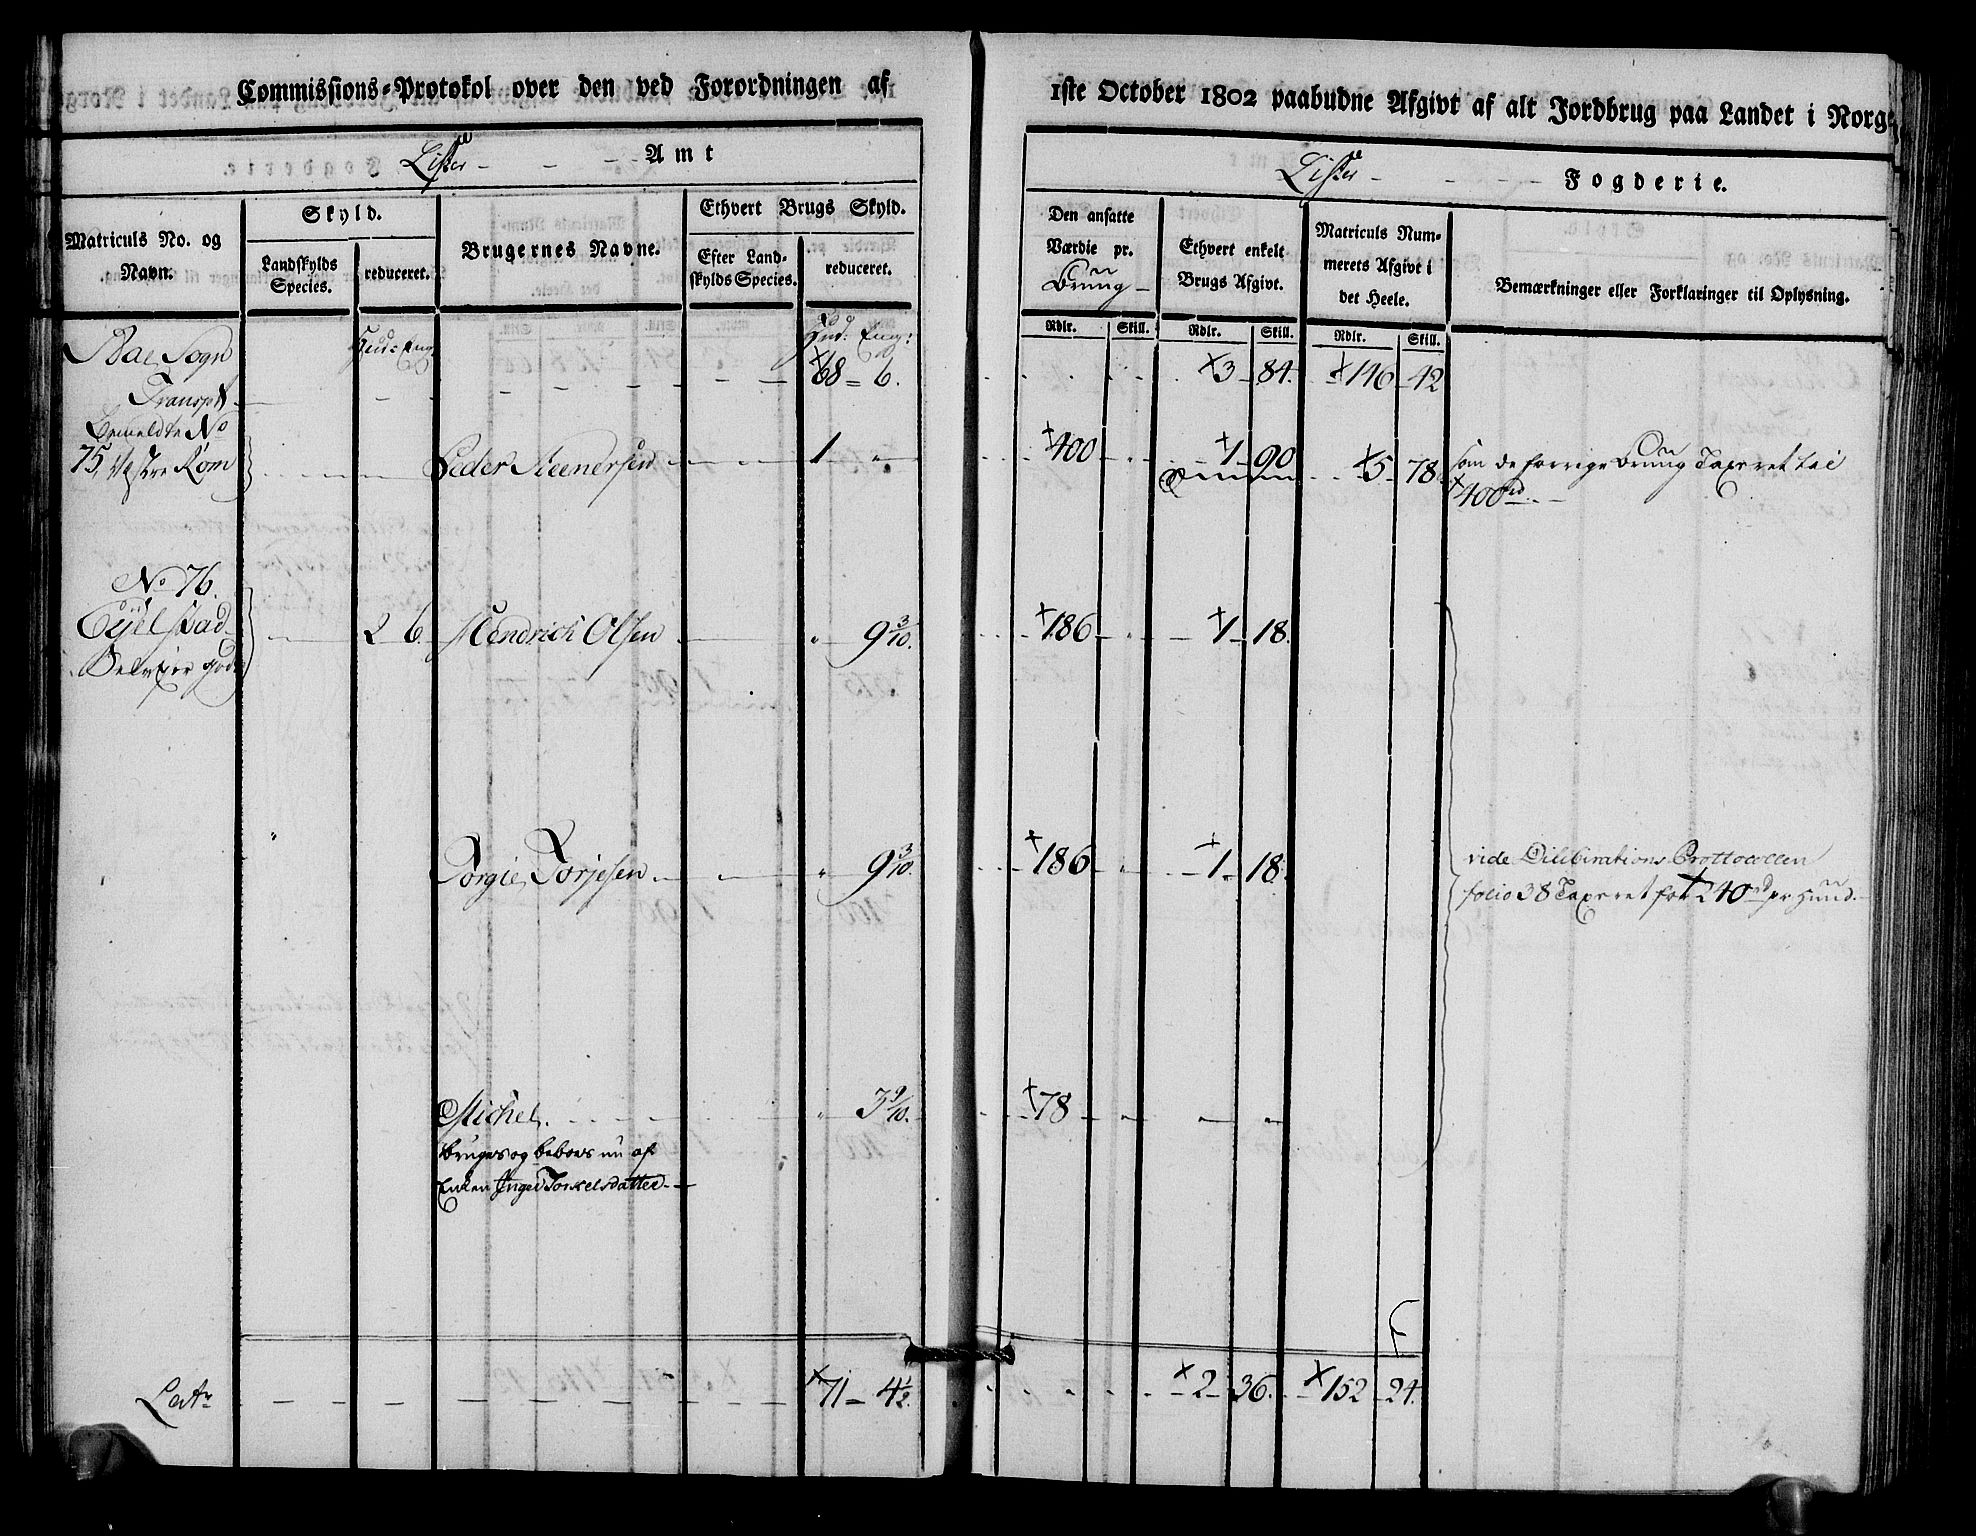 Commissions-Protokol over den ved Forordningen af 1ste October 1802 paabudne Afgivt af alt Jordbrug paa Landet i Norge
Lister Amt
Lister Fogderie.
Matriculs No. og Navn.
Skyld.
Landskylds Species.
reduceret.
Brugernes Navne.
Ethvert Brugs Skyld.
Efter Landskylds Species.
reduceret.
Den ansatte Værdie pr. Bruug
Ethvert enkelt Brugs Afgivt.
Matriculs Nummerets Afgivt i det Heele.
Bemærkninger eller Forklaringer til Oplysning.
Rdlr. Skill. Rdlr. Skill. Rdlr. Skill.
Sogn Hud: Eng: Hud: Eng:
Transpt 68 - 6. 3 - 84. 146 - 42
Bemeldte No
75, Rom Peder 1 " 400 1 - 90 5 - 78 som de forrige Bruug Taxeret til
400 rd.
No 76.
Eijelstad 2 6 Hendrich Olsen " 9 3/10. 186 1 - 18.
gods
Torgie Torjesen " 9 3/10. 186 1 - 18. vide Deliberations Prottocollen
folio 38 Taxeret for 240 rd pr Huud.
Michel. " 3 9/10. 78
bruges og beboes nu af
Enken Inger Torkelsdatter
Latr 71 - 4 1/2. 2 - 36. 152 - 24.